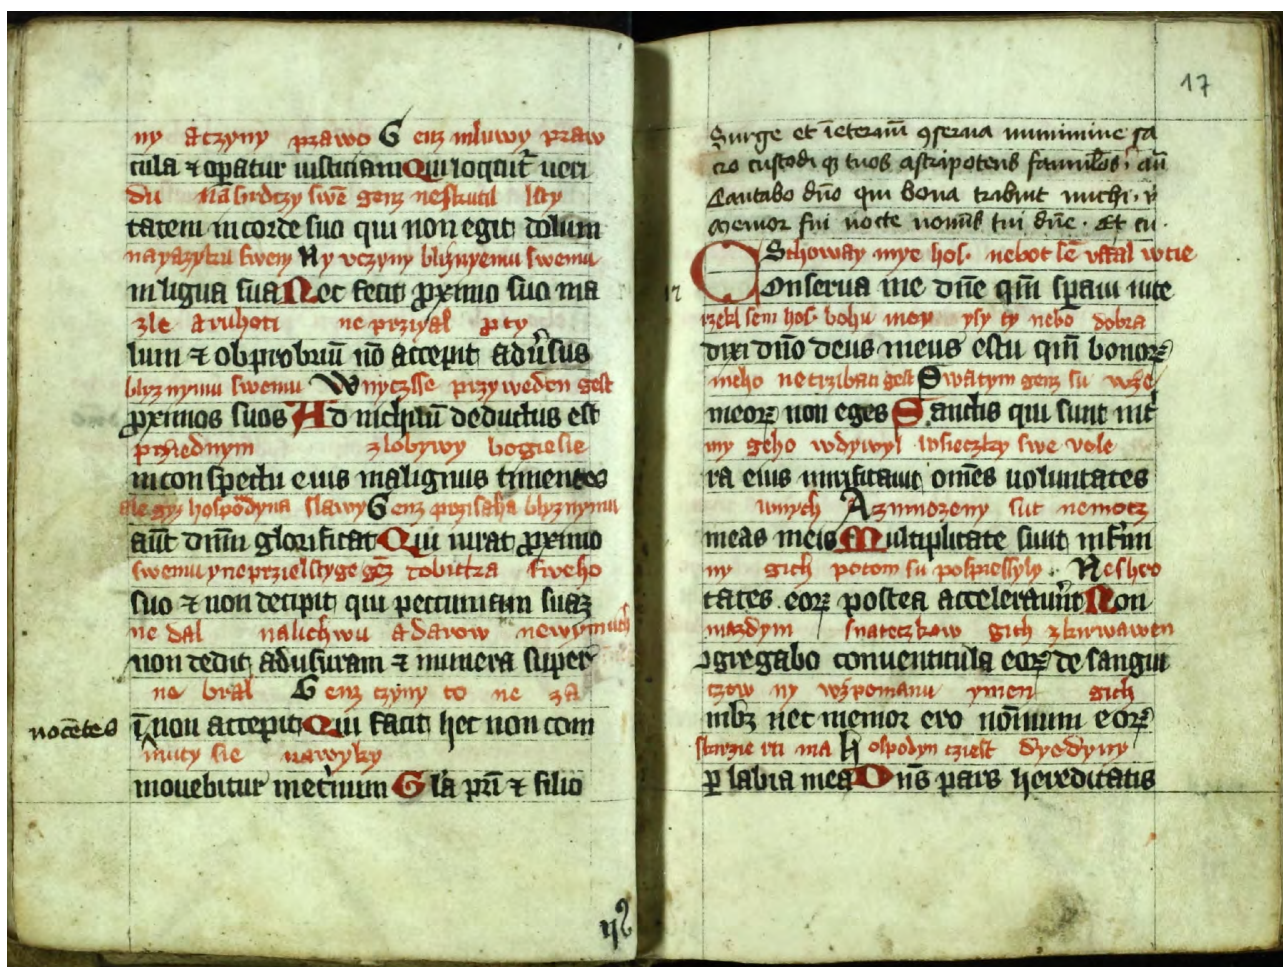 ny aczyny prawo Genz mluwy praw
cula ⁊ oꝑatur iusticiam Qui loquit᷑ ueri
du nasrdczy swe᷑ genz neskutil lsty
tatem in corde suo qui non egit dolum
nayazyku swem Ny vczyny bliznyemu swemu
in ligua sua Nec fecit ꝓximo suo ma
zle aruhoti ne przyal pty
lum ⁊ obprobriū nō accepit adu᷑sus
blyznymu swemu Wnyczsse przyweden gest
ꝓximos suos Ad nichilū deductus est
prziednym zlobywy bogiesie
in conspectu eius malignus timentes
ale gyz hospodyna slawy Genz przisaha blyznymu
aūt dnm̄ glorificat Qui iurat ꝓximo
swemu yneprzielstyge gēz dobitka sweho
suo ⁊ non decipit qui peccuniam suaꝫ
ne dal nalichwu adarow newynnych
non dedit adusuram ⁊ munera super
ne bral Genz czyny to ne za
nocētes ī non accepit Qui facit hec non com
muty sie nawyky
movebitur ineternum Gl̄a pri᷑ ⁊ filio
17
Surge et īeternū ꝯserua munimine sa
cro custodi qꝫ tuos astripotens famulos, añ
Cantabo dn̄o qui bona tribuit michi, v̄
Memor fui nocte nominis tui dn̄e. Et cu.
Schoway mye hos. nebot sē vffal wtie
Conserua me dn̄e qm̄ sꝑaui inte
rzekl sem hos. bohu moy ysy ty nebo dobra
dixi dn̄o deus meus estu qm̄ bonoꝝ
meho netrzibati gest Swatym genz su wze
meoꝝ non eges Sanctis qui sunt int᷑
my geho wdywyl wsieczky swe vole
ra eius mirificauit om̄es uoluntates
wnych Azmnozeny sut nemocz
meas meis Multiplicate sunt infirmi
ny gich potom su pospiessyly. Nesbeo
tates eoꝝ postea accelerauūt Non
mazdym snateczkow gich zkrwawen
ꝯgregabo conuenticula eoꝝ de sangui
czow ny wzpomanu ymen gich
nibꝫ nec memor ero nōinum eoꝝ
skrzie rti ma Hospodyn cziest dyedyny
ꝑ labia mea Dn̄s pars hereditatis